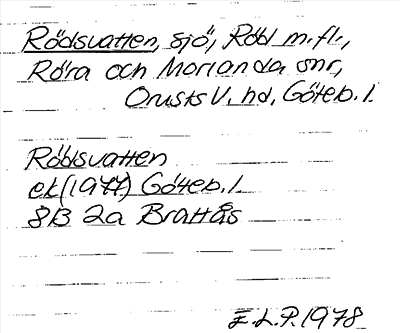 Rödsvatten, sjö, Röd m.fl.,
Röra och Morlanda snr,
Orusts V. hd, Göteb. l.
Rödsvatten
ek (1977) Göteb. l.
8B 2a Brattås
E.L.P. 1978